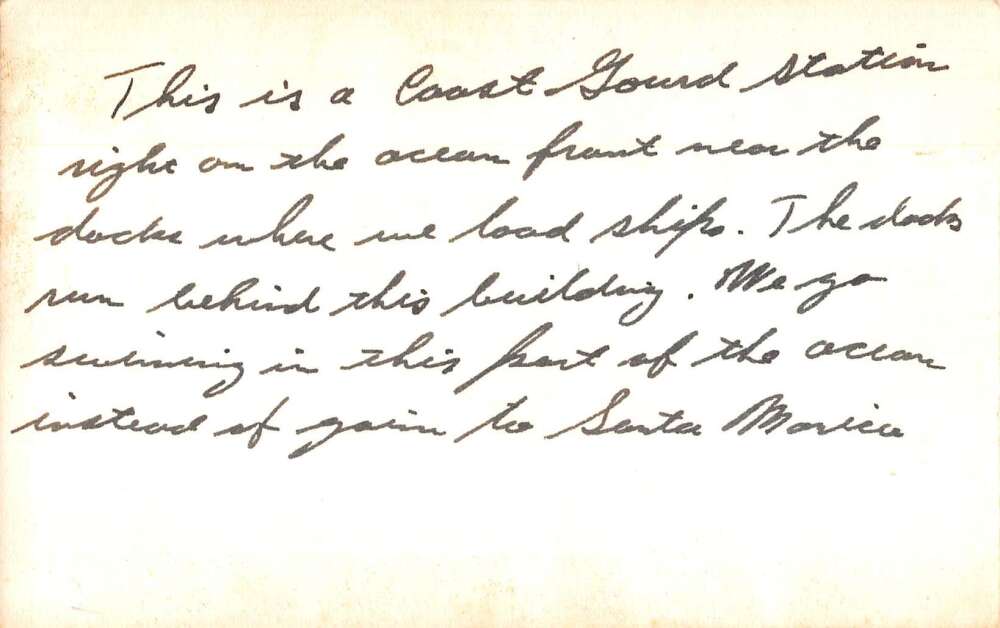 This is a Coast Gourd Station
right on the ocean front near the
docks where we load ships. The docks
run behind this building. We go
swiming in this part of the ocean
instead of goin to Santa Monica